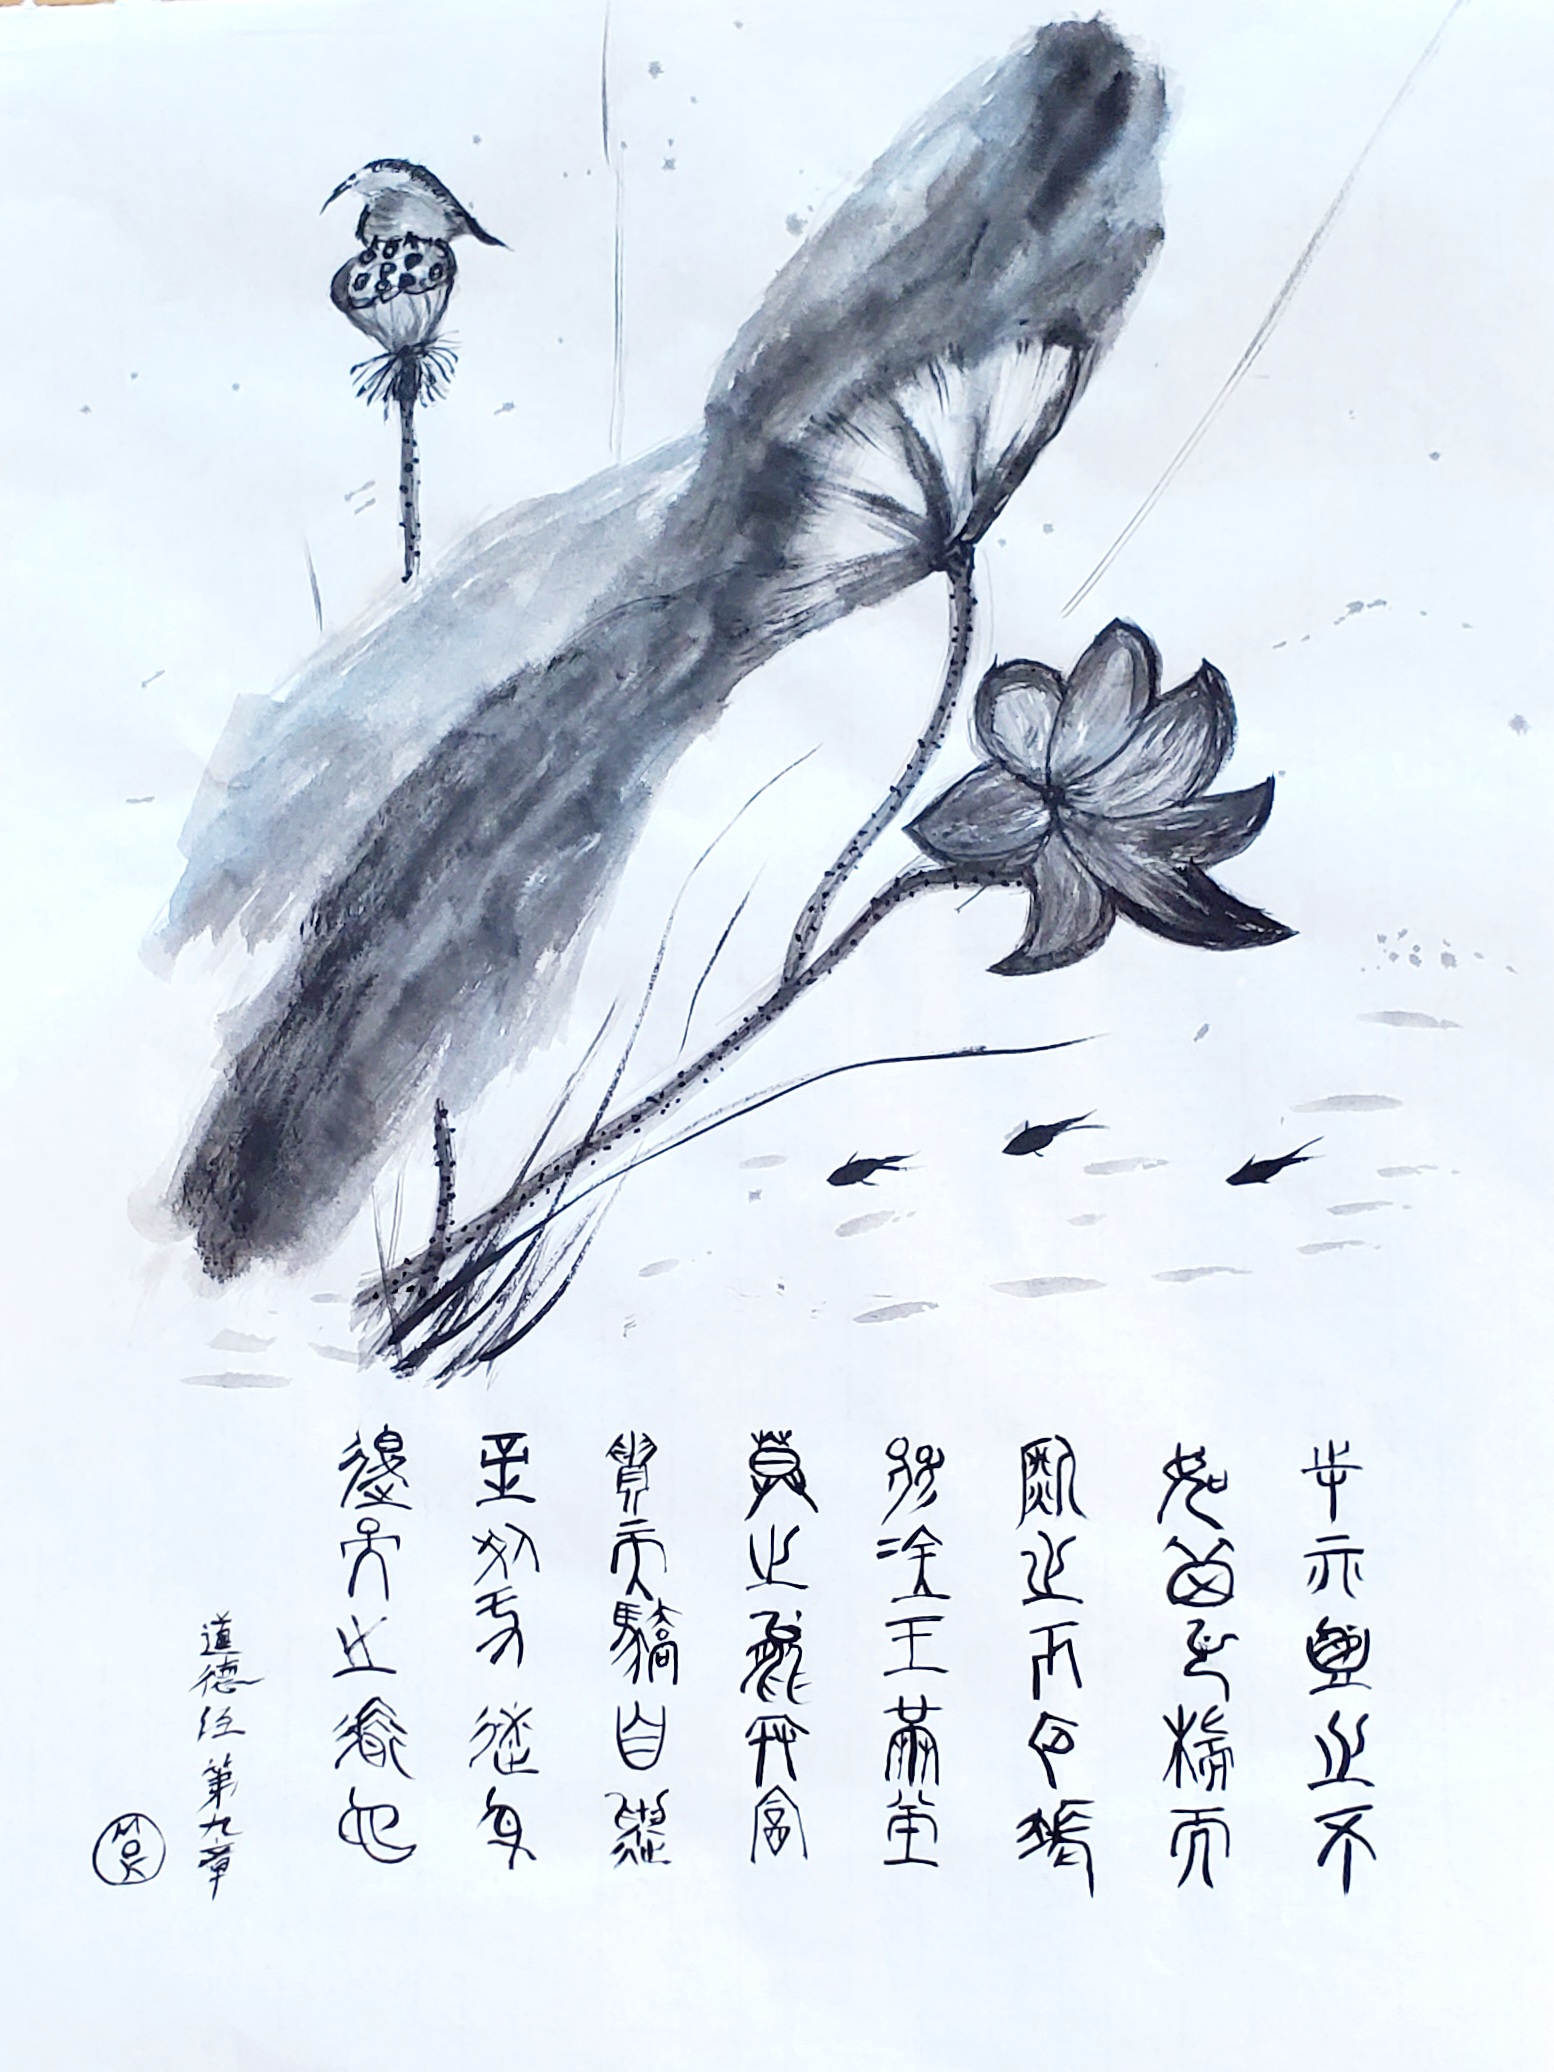 持而盈之不
如其已揣而
銳之不可長
保金玉滿堂
莫之能守富
貴而驕自遺
其咎功遂身
退天之道也
道德经第九章
MOK